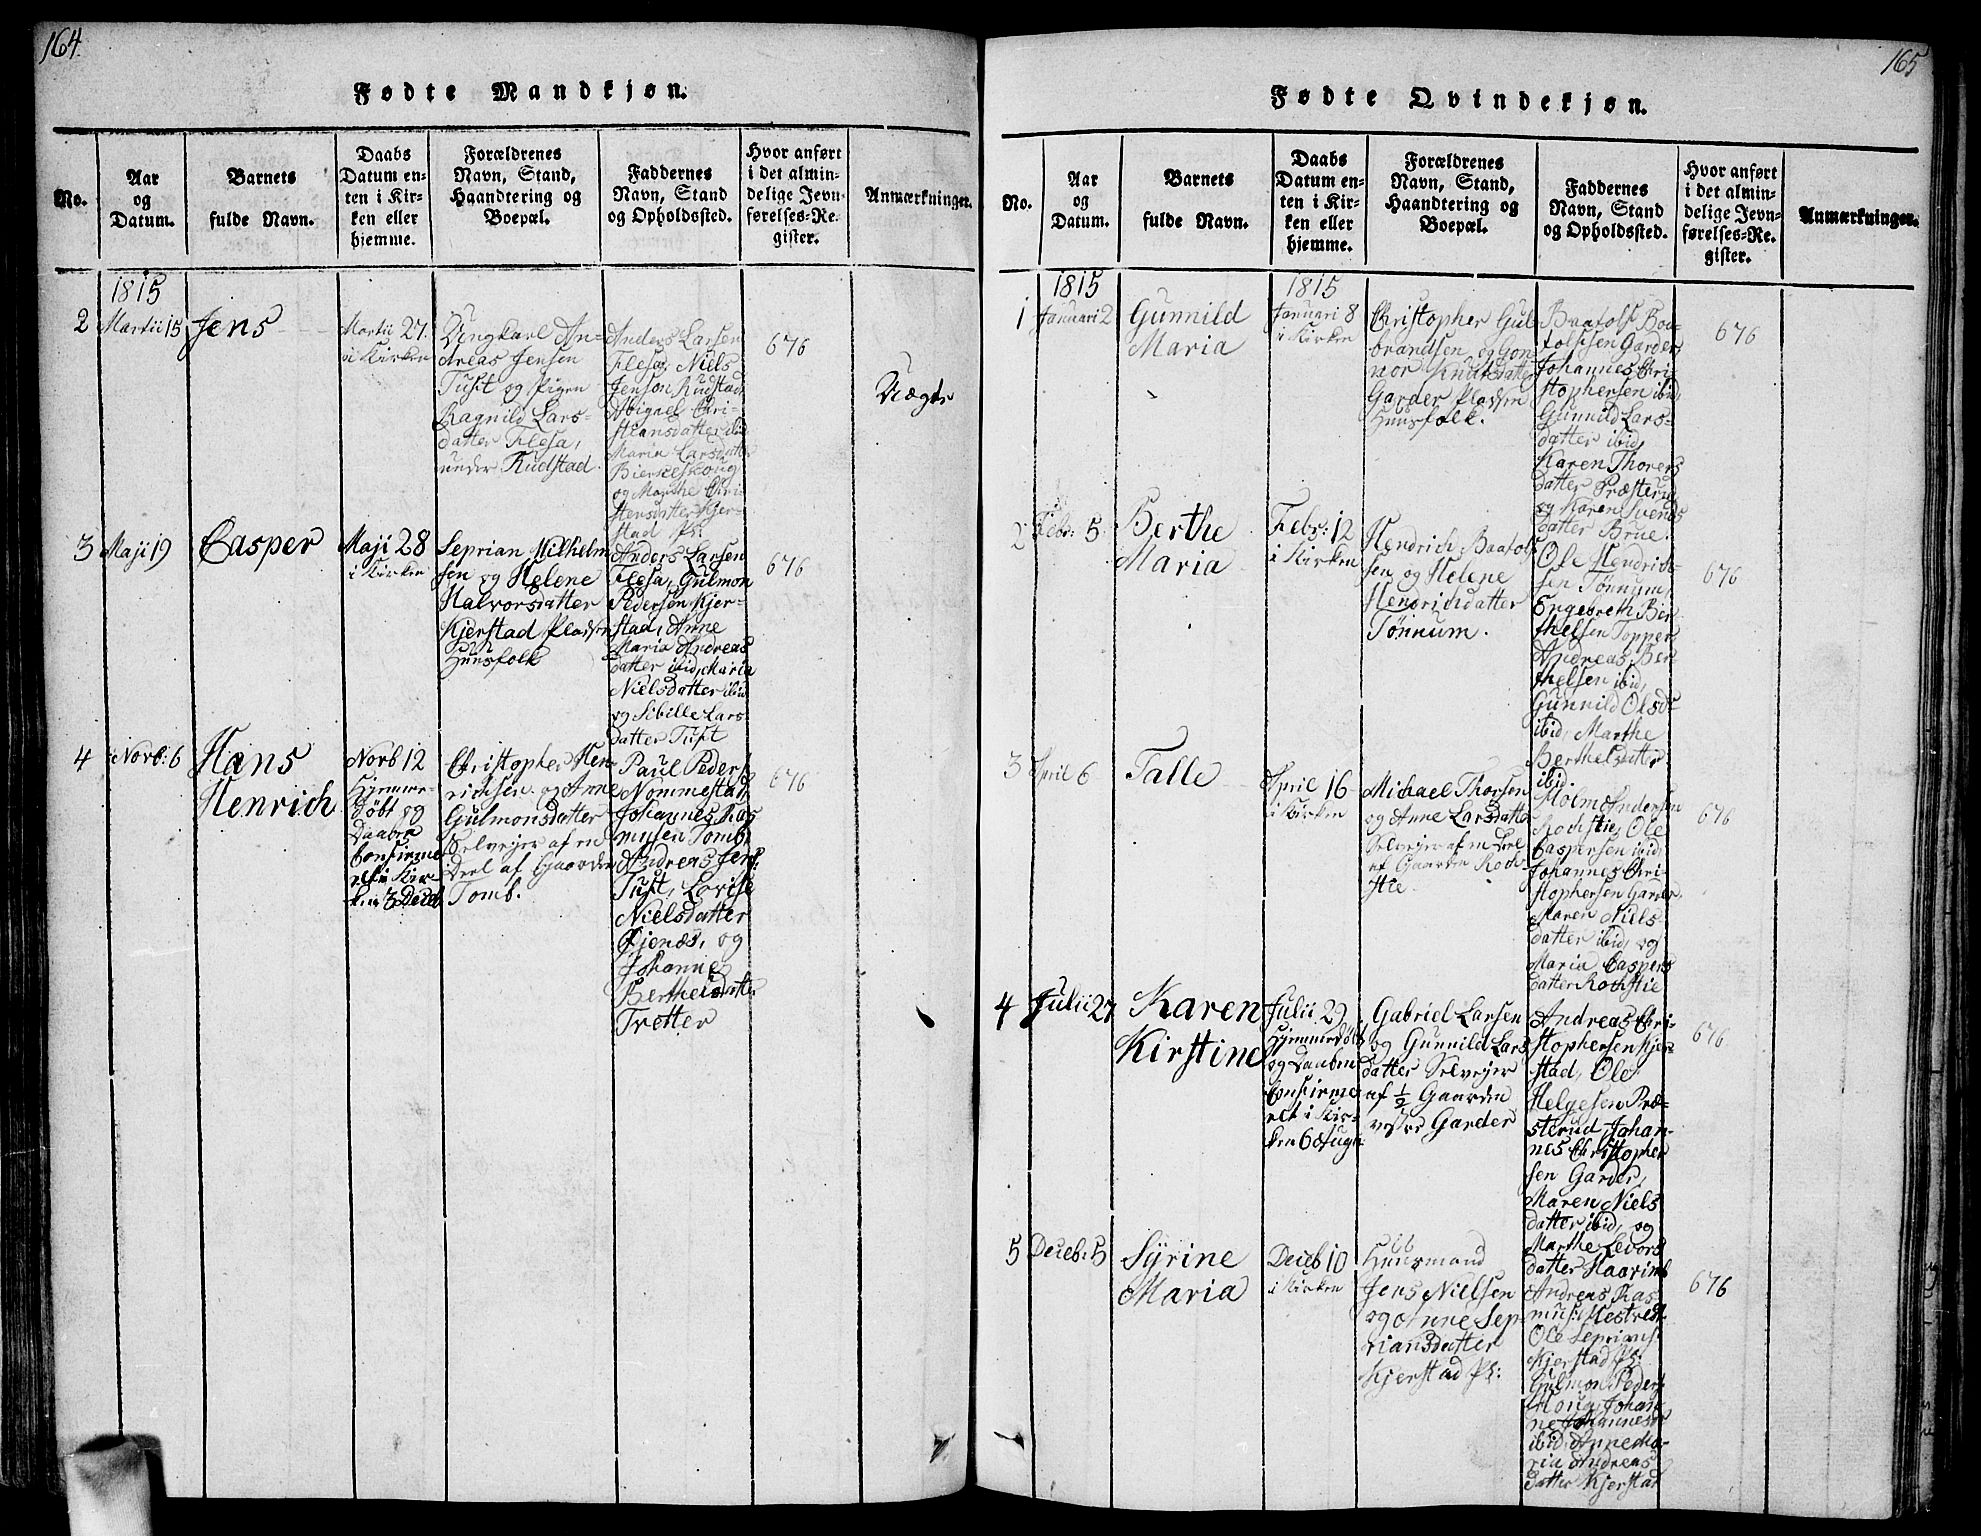 164.
Fødte Mandkjøn.
No.
Aar
og
Datum.
Barnets
fulde Navn.
Daabs
Datum en-
ten i Kir-
ken eller
hjemme.
Forældrenes
Navn, Stand,
Haandtering og
Boepæl.
Faddernes
Navn, Stand
og Opholdssted.
Hvor anført
i det almin-
delige Jevn-
førelses-Re-
gister.
Anmærkninger.
1815
2
Martii 15
Jens
Martii 27.
i Kirken
Ungkarl An-
dreas Jensen
Tuft og Pigen
Ragnild Lars-
datter Flesa,
under Rudstad.
Anders Larsen
Flesa, Niels
Jenson Rudstad
Abigael Chri-
stiansdatter ibid
Maria Larsdatter
og Marthe Chri-
stensdatter Kjer-
stad Pl:
676
Uægte
3
Maji 19
Casper
Maji 28
i Kirken
Seprian Wilhelm-
sen og Helene
Halvorsdatter
Kjerstad Pladsen
Huusfolk
Anders Larsen
Flesa, Gulmon
Pedersen Kjer-
stad, Anne
Maria Andreas
datter ibid, Maria
Nielsdatter ibid
og Sibille Lars
datter Tuft
676
4
Novb: 6
Hans
Henrich
Novb 12
Hjemme-
døbt og
Daaben
Confirme-
ret i Kir-
ken 3 Deceb
Christopher Hen-
richsen og Anne
Gulmonsdatter
Selvejer af en
Deel af Gaarden
Tomb.
Paul Peders:
Nommestad
Johannes Ras
musen Tomb,
Andreas Jens:
Tuft, Lovise
Nielsdatter
Øjenæs, og
Johanne
Berthelsdatter
Tretter
676
165
Fødte Qvindekjøn.
No.
Aar
og
Datum.
Barnets
fulde Navn.
Daabs
Datum en-
ten i Kir-
ken eller
hjemme.
Forældrenes
Navn, Stand,
Haandtering og
Boepæl.
Faddernes
Navn, Stand
og Opholdssted.
Hvor anført
i det almin-
delige Jevn-
førelses-Re-
gister.
Anmærkninger.
1815
1815
1
Januari 2
Gunnild
Maria
Januari 8
i Kirken
Christopher Gul
brandsen og Gon
nor Knutsdatter
Garder Pladsen
Huusfolk.
Baatolf Boa-
tolfsen Garder,
Johannes Chri-
stophersen ibid,
Gunnild Lars-
datter ibid,
Karen Thores
datter Præsterud
og Karen Svends
datter Brue.
676
2
Febr: 5
Berthe
Maria
Febr: 12
i Kirken
Hendrich Baatolf
sen og Helene
Hendrichdatter
Tønnum.
Ole Hendrich-
sen Tønnum,
Engebreth Ber-
thelsen Topper
Andreas Ber-
thelsen ibid,
Gunnild Olsdr
ibid, Marthe
Berthelsdatter
ibid.
676
3
April 6
Talle
April 16
i Kirken
Michael Thorsen
og Anne Larsdatter
Selvejer af en Deel
af Gaarden Roch-
stie.
Holm Andersen
Rochstie, Ole
Caspersen ibid,
Johannes Chri-
stophersen Garder.
Maren Niels-
datter ibid, og
Maria Caspers
datter Rochstie
676
4
Julii 27
Karen
Kirstine
Julii 29
Hjemmedøbt
og Daaben
Confirme-
ret i Kir-
ken 6 Augu
Gabriel Larsen
og Gunnild Lars
datter Selvejer
af ½ Gaarden
vestre Garder
Andreas Chri-
stophersen Kjer-
stad, Ole
Helgesen Præ-
sterud, Johan-
nes Christopher
sen Garder,
Maren Niels
datter ibid, og
Marthe Levors
datter Haarim
676
5
Deceb: 5
Syrine
Maria
Deceb 10
i Kirken
Huusmand
Jens Nielsen
og Anne Sep-
riansdatter
Kjerstad Pl:
Andreas Ras
mus: Mestred
Ole Seprians:
Kjerstad Pl:
Gulmon Peders
Moua, Johan
ne Johannesdr
ibid, Anne Ma-
ria Andreas
datter Kjerstad
676